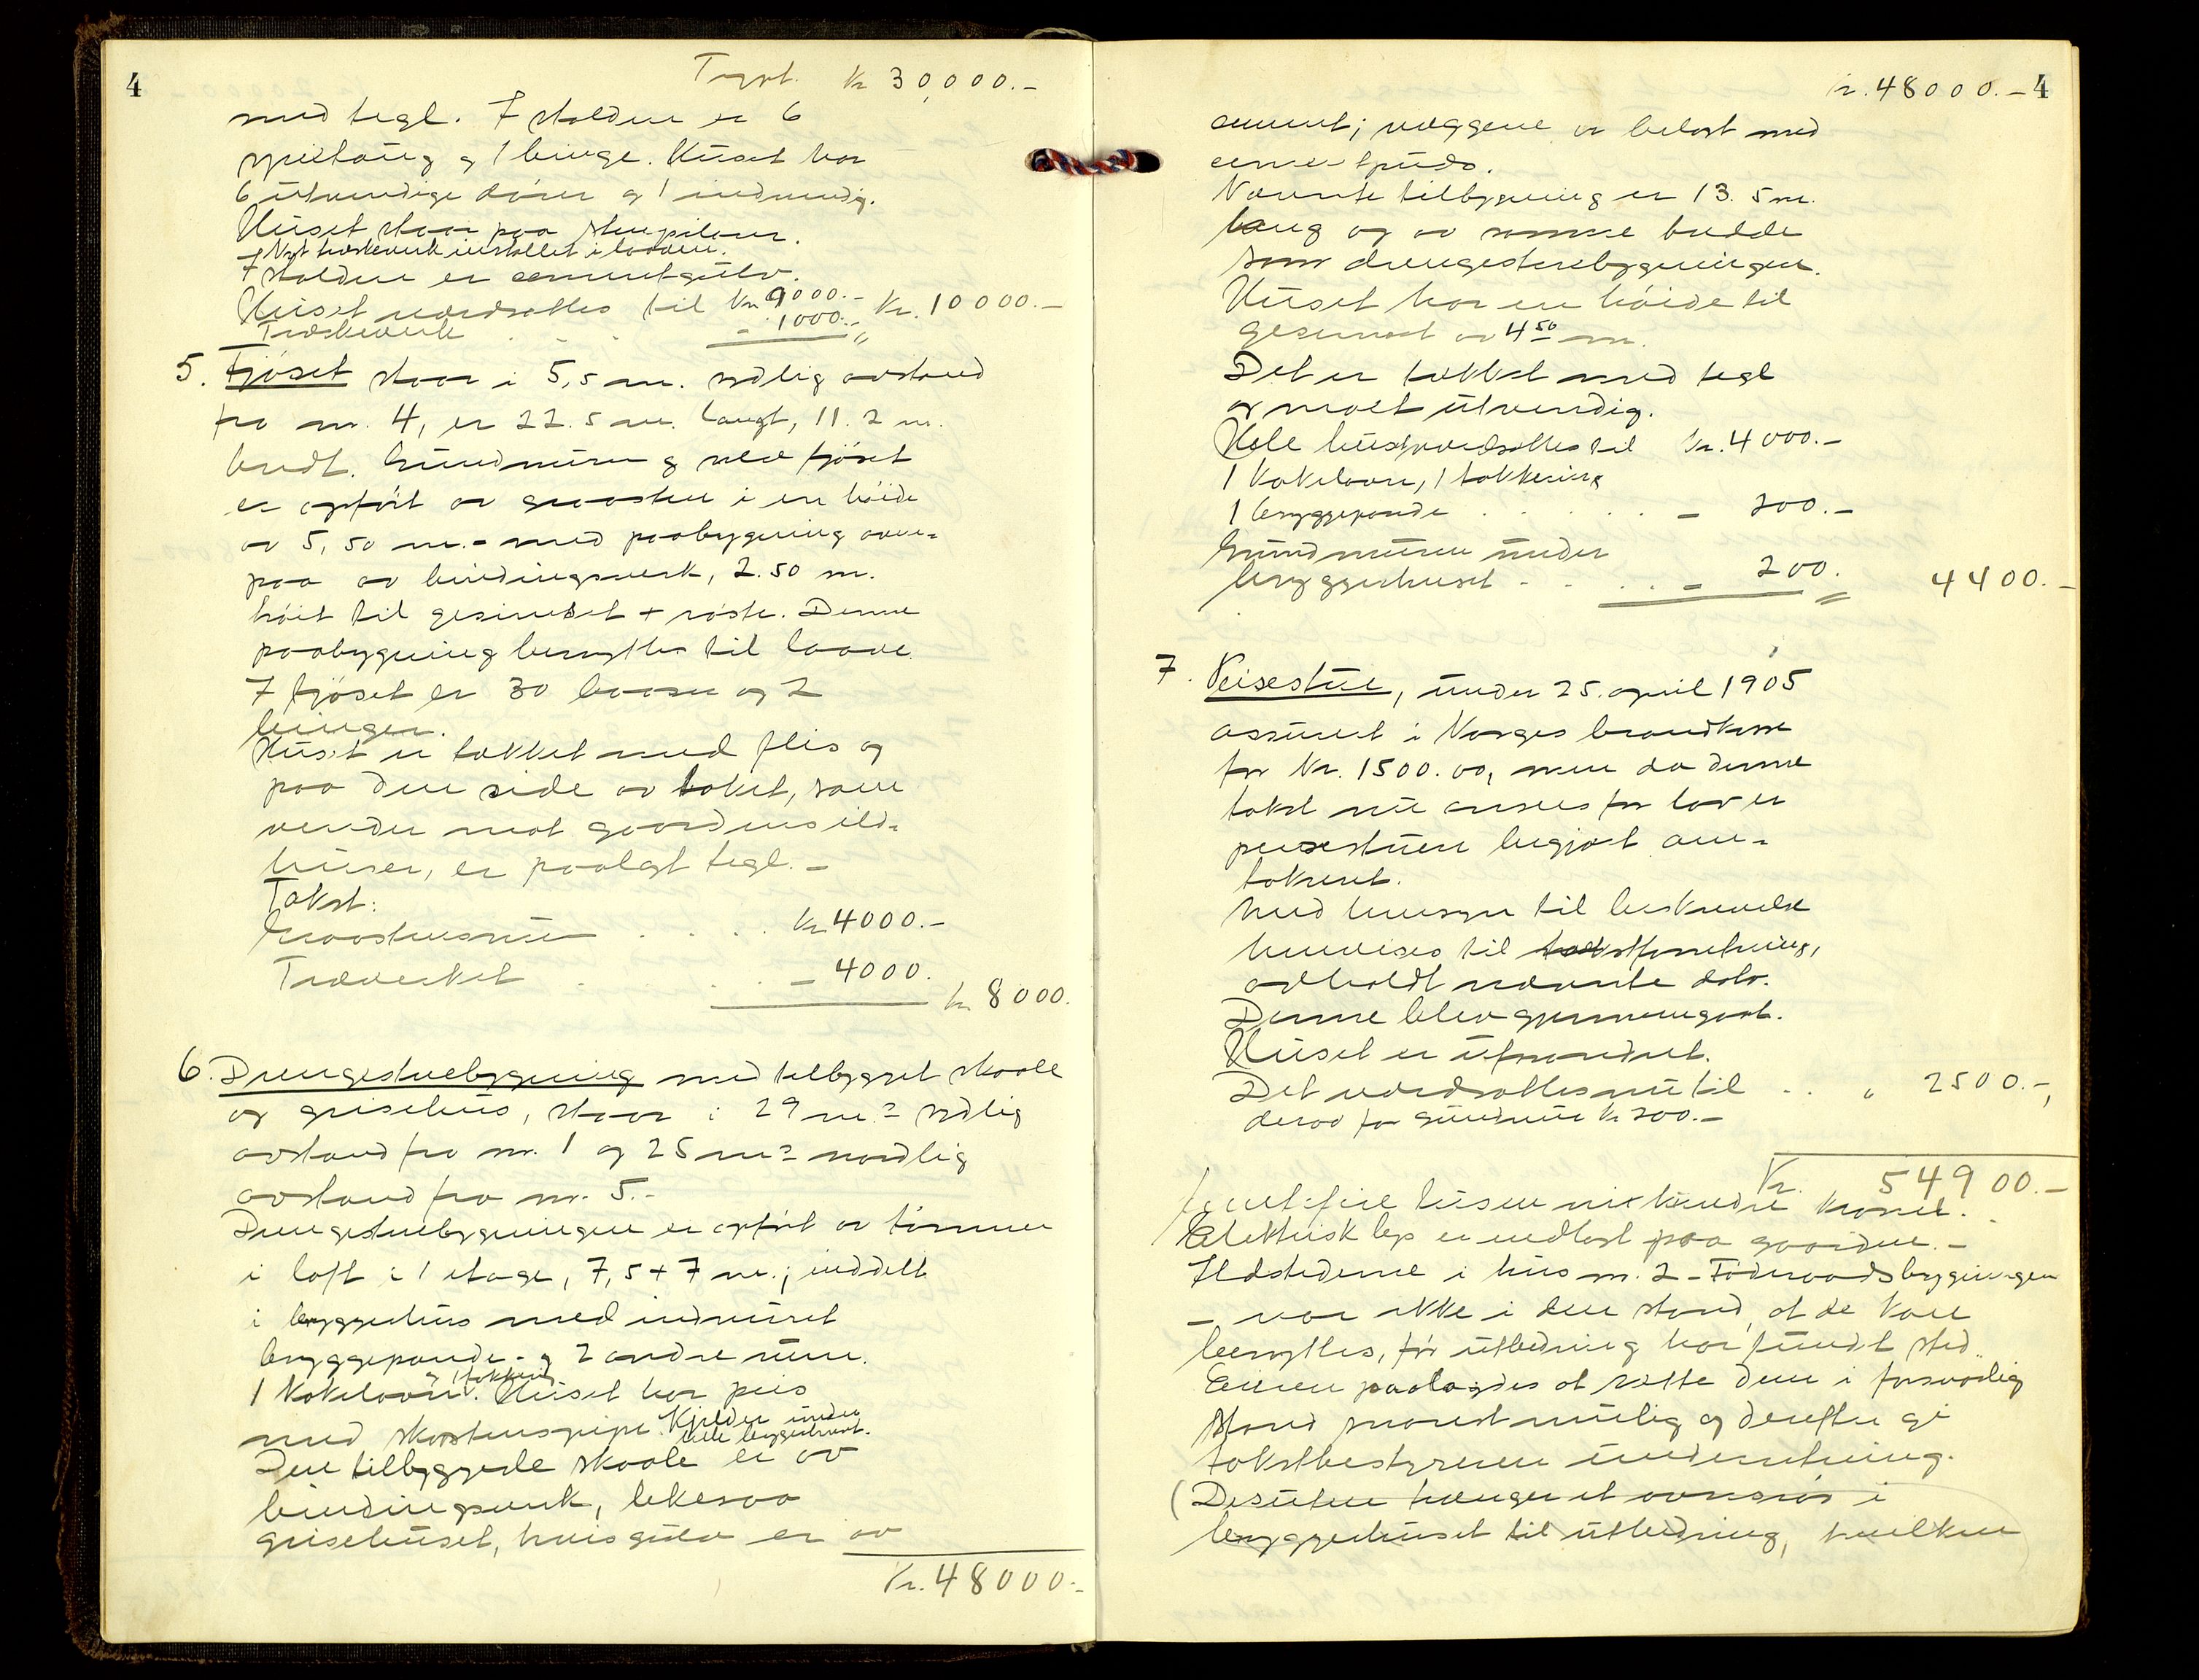 4
Trpt. Kr 30,000.-
med tegl. I stalden er 6
spiltaug og 1 binge. Huset har
6 utvendige dører og 1 indvendig.
Huset staar paa stenpilarer.
Nyt træskeverk installert i laaven.
I stalden er cementgulv.
Huset værdsættes til Kr 9000.- Kr. 10000.-
Træskeverk . . . - 1000.-
5. Fjøset staar i 5,5 m. sydlig avstand
fra nr. 4, er 22.5 m. langt, 11.2 m.
bredt. Grundmuren og selve fjøset
er opført av graasten i en høide
av 5,50 m. - med paabygning oven-
paa av bindingsverk, 2.50 m.
høit til gesimset + røste. Denne
paabygning benyttes til laave.
I fjøset er 30 baaser og 2
binger.
Huset er tækket med flis og
paa den side av taket, som
vender mot gaardens ild-
huser, er paalagt tegl. -
Takst:
Graastensmur . . . . Kr 4000.-
Træverket . . . . - 4000.
Kr 8000.
6. Drengestuebygning med tilbygget skaale
og grisehus, staar i 29 m.² sydlig
avstand fra nr. 1 og 25 m² nordlig
avstand fra nr. 5.-
Drengestuebygningen er opført av tømmer
i loft i 1 etage, 7,5 + 7 m.; inddelt
i bryggerhus med indmuret
bryggepande - og 2 andre rum.
og 1 takkering
1 Kakelovn. Huset har peis
med skorstenspipe. Kjelder under
hele bryggerhuset.
Den tilbyggede skaale er av
bindingsverk, likesaa
grisehuset, hvis gulv er av
Kr. 48000.-
Kr. 48000.- 4
cement; væggene er belagt med
cementpuds.
Nævnte tilbygning er 13.5 m.
lang og av samme bredde
som drengestuebygningen.
Huset har en høide til
gesimset av 4.50 m.
Det er tækket med tegl
og malt utvendig.
Hele huset værdsættes til Kr. 4000.-
1 Kakelovn, 1 takkering
1 bryggepande . . . . . - 200.-
Grundmuren under
bryggerhuset - . . . - 200. 4400.-
7. Peisestue, under 25. april 1905
assurert i Norges brandkasse
for Kr. 1500.00, men da denne
takst nu ansees for lav er
peisestuen begjært om-
taksert.
Med hensyn til beskrivelse
henvises til takstforretning,
avholdt nævnte dato.
Denne blev gjennemgaat.
Huset er uforandret.
Det værdsættes nu til . . " 2500.-,
derav for grundmur Kr 200.-
Kr. 54900.-
femtifire tusen nihundre kroner.
Elektrisk lys er indlagt paa gaarden. -
Ildstederne i hus nr. 2 - Føderaadsbygningen
- var ikke i den stand, at de kan
benyttes, før utbedring har fundt sted.
Eieren paalagdes at sætte dem i forsvarlig
stand snarest mulig og derefter gi
takstbestyreren underretning.
(Desuten trænger et ovnsrør i
bryggerhuset til utbedring, hvilken